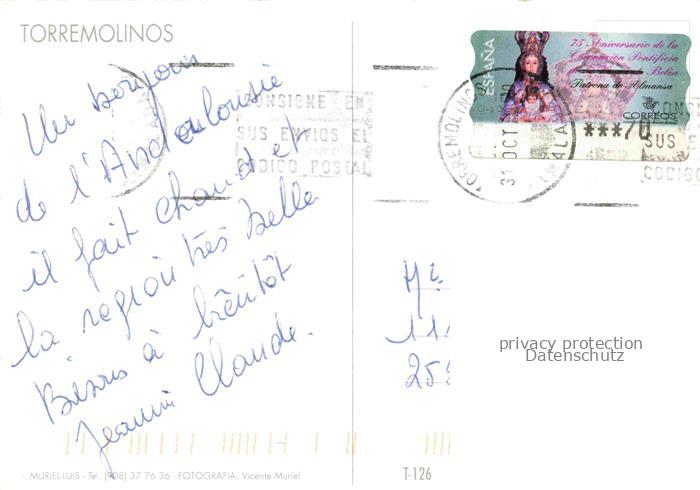 TORREMOLINOS
Un bonjour
de l'Andalousie
il fait chaud et
la region très belle
Bisous à bientôt
Jeannine Claude.
MURIEL-LUIS - Tel. (908) 37 76 36 - FOTOGRAFIA: Vicente Muriel
T-126
ESPAÑA
75 Aniversario de la
Coronación Pontificia
Belén
Patrona de Almansa
CORREOS
***70
TORREMOLINOS
31 OCT
CONSIGNE EN
SUS ENVIOS EL
CODIGO POSTAL
CON
SUS
CODIGO
11
25
privacy protection
Datenschutz